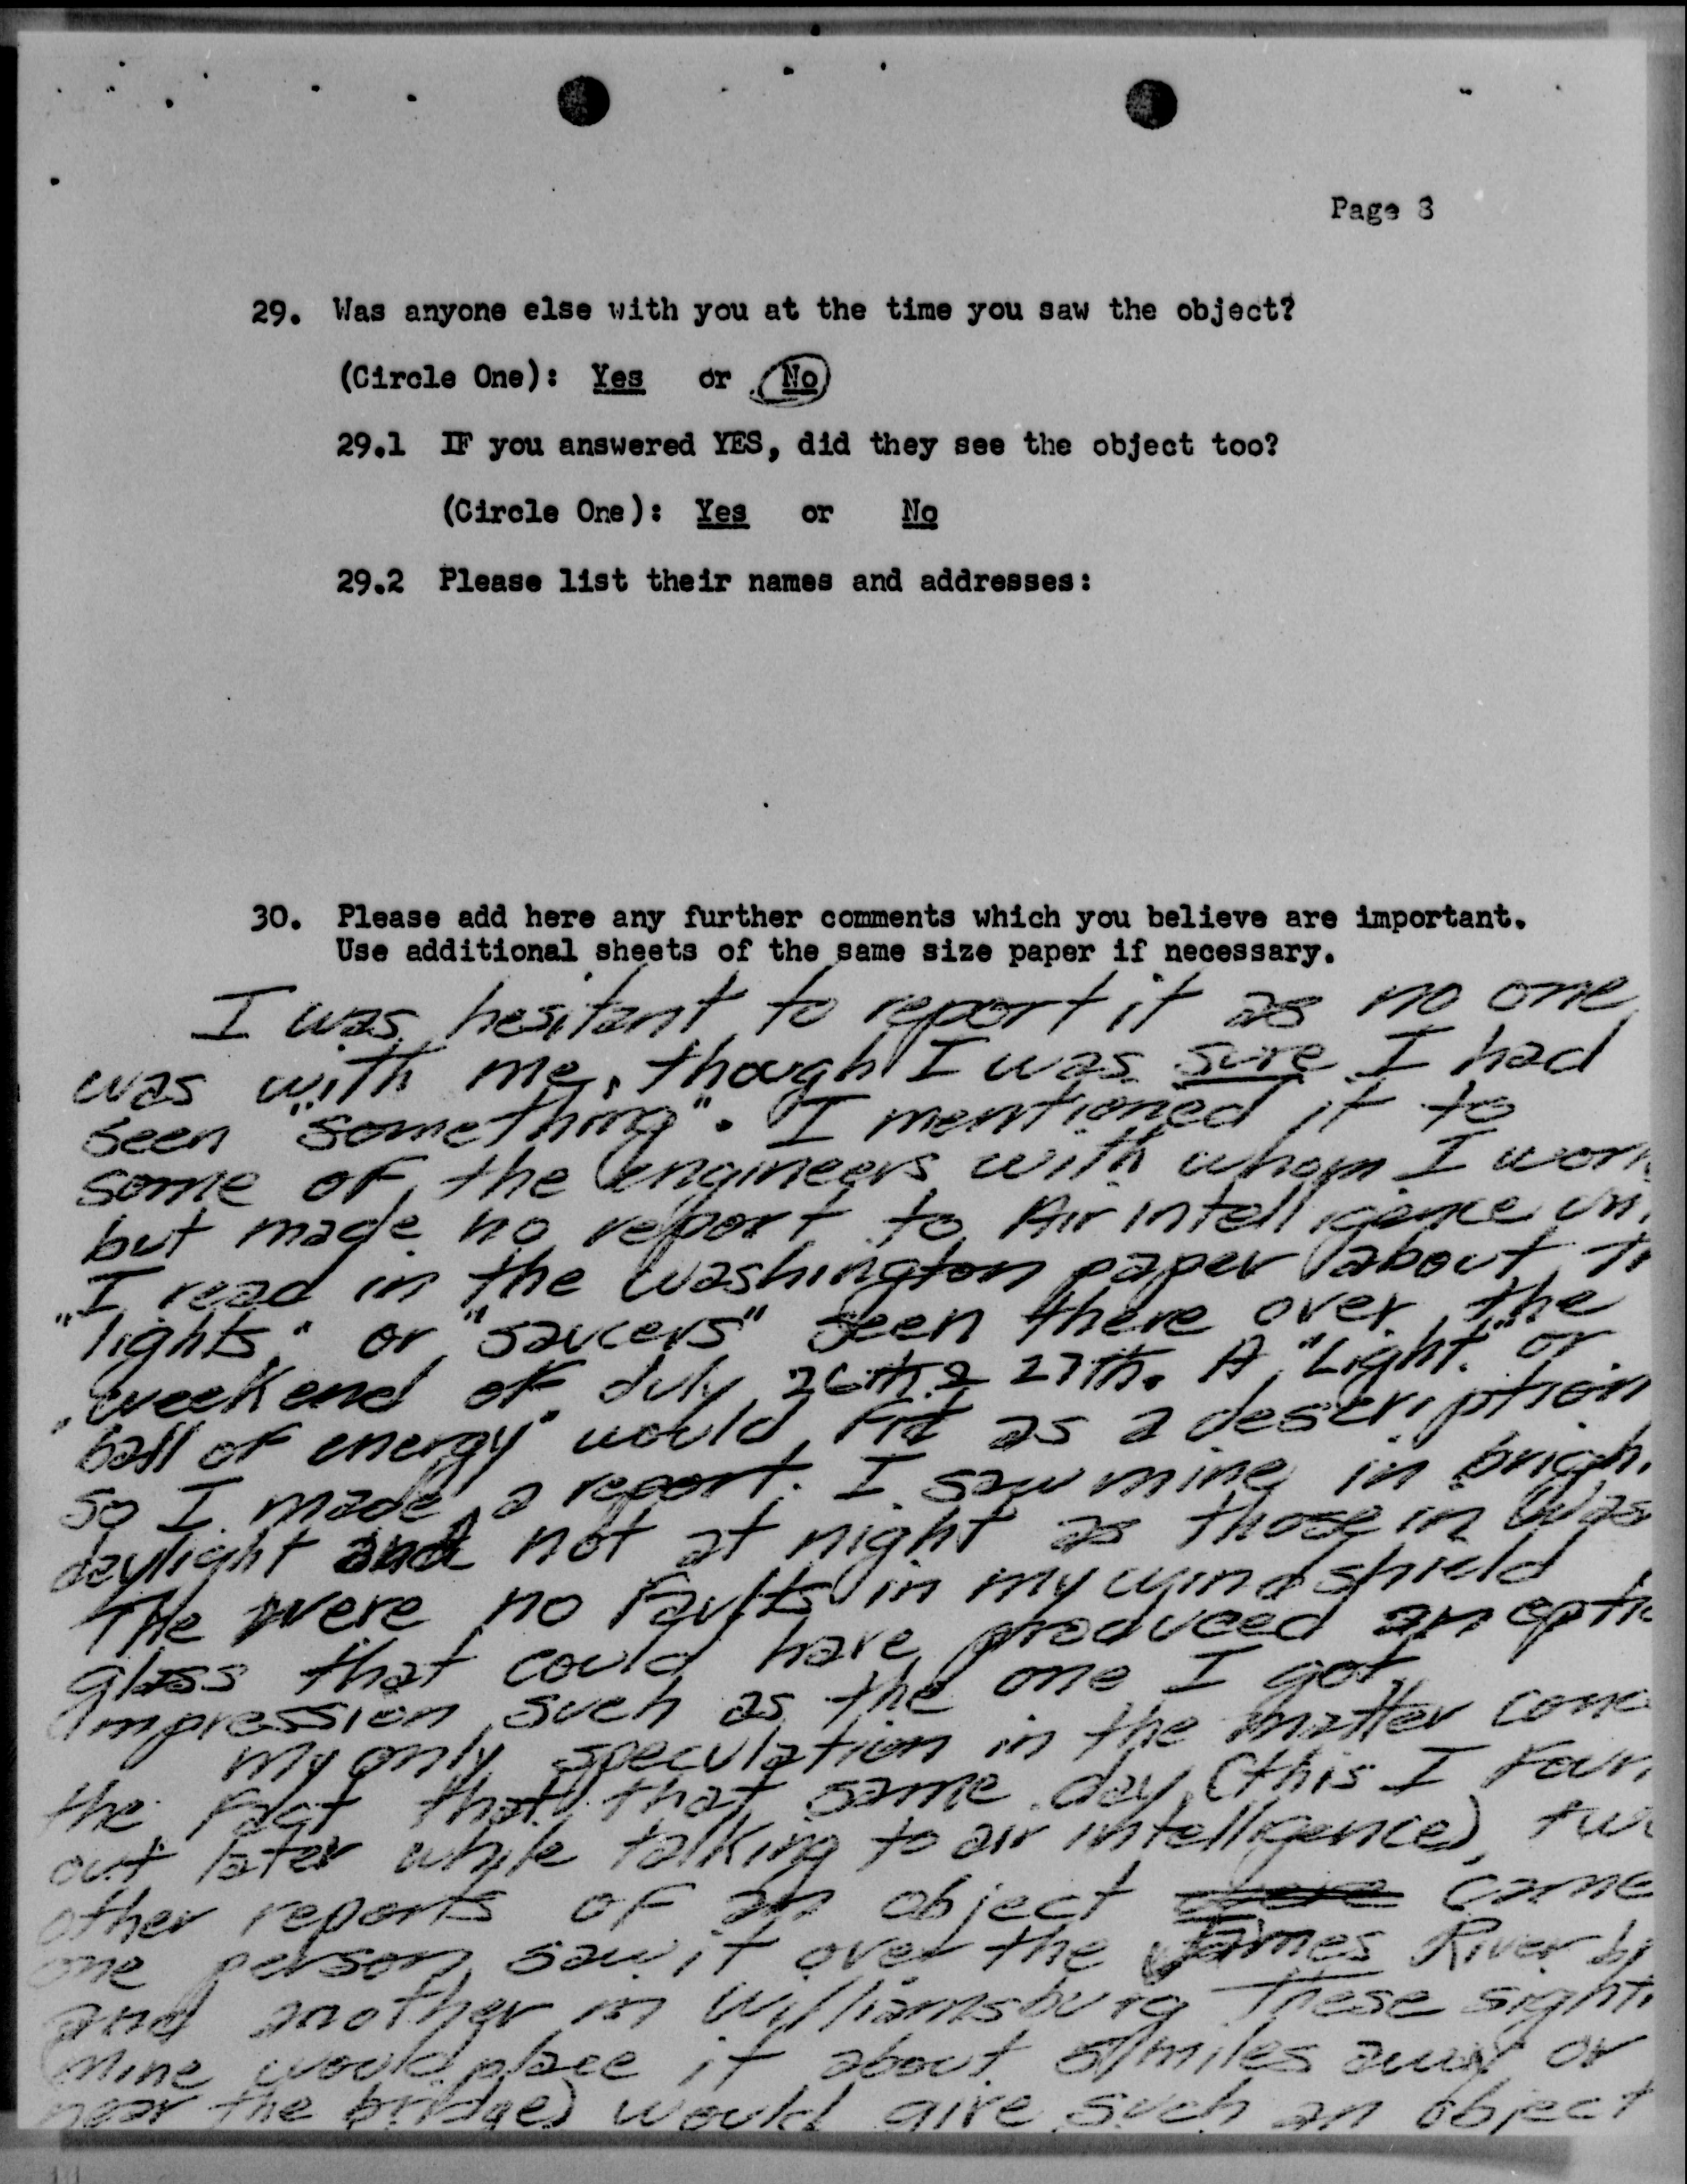 Page 8
29. Was anyone else with you at the time you saw the object?
(Circle One): Yes or No
29.1 IF you answered YES, did they see the object too?
(Circle One): Yes or No
29.2 Please list their names and addresses:
30. Please add here any further comments which you believe are important.
Use additional sheets of the same size paper if necessary.
I was hesitant to report it as no one
was with me, though I was sure I had
seen "something". I mentioned it to
some of the engineers with whom I work
but made no report to Air intelligence
I read in the Washington paper about
"lights" or "saucers" seen there over the
weekend of July 26th & 27th. A "Light" or
"ball of energy" would fit as a description
so I made a report. I saw mine in brigh
daylight and not at night as those in Was
The were no faults in my windshield
glass that could have produced an optic
impression such as the one I got
My only speculation in the matter conc
the fact that that same day (this I foun
out later while talking to air intelligence), two
other reports of an object came
one person saw it over the James River
and another in Williamsburg These sight
(mine would place it about 5 miles away or
near the bridge) would give such an object